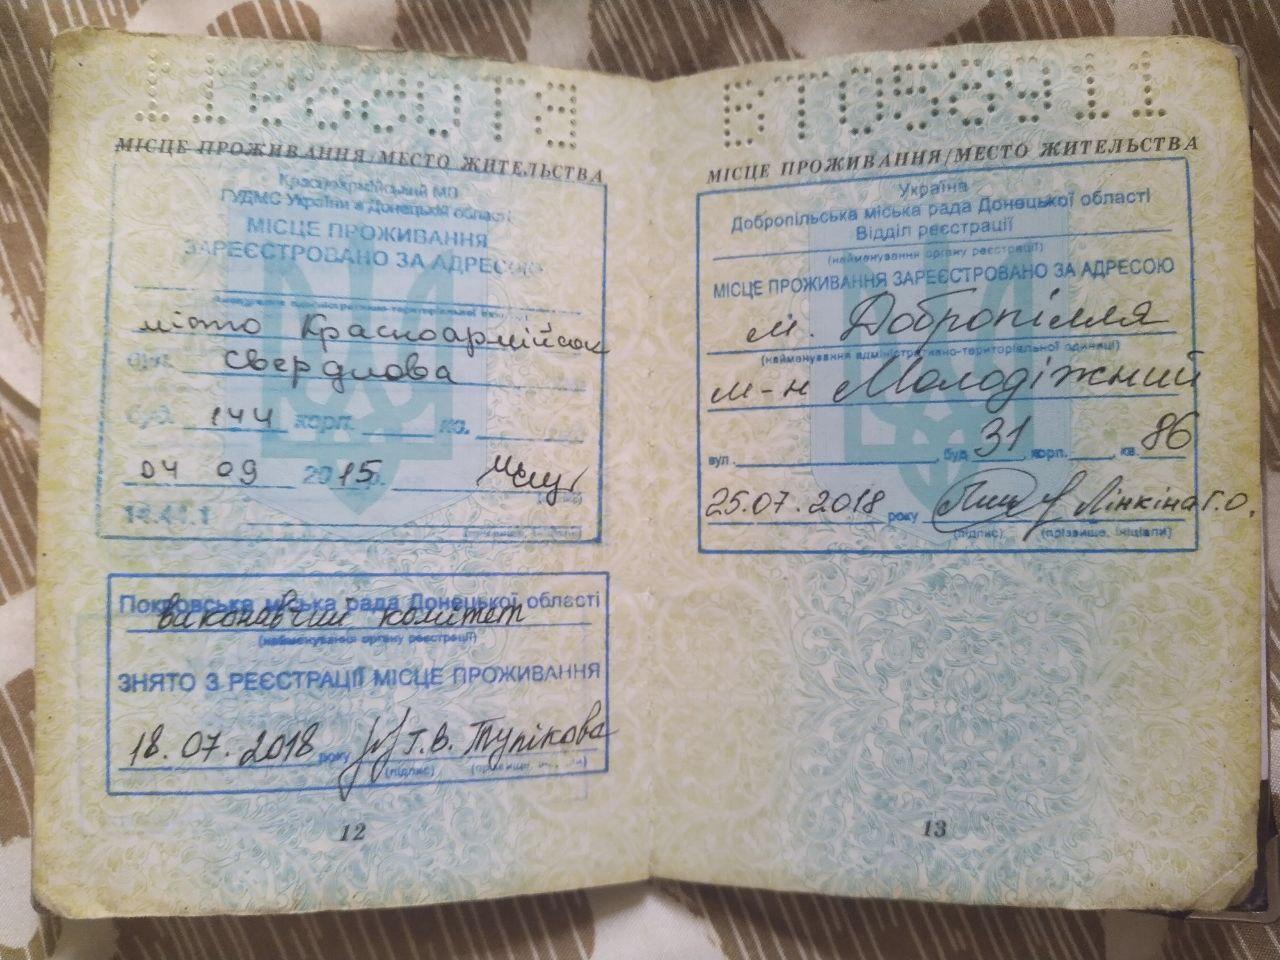 МІСЦЕ ПРОЖИВАННЯ/МЕСТО ЖИТЕЛЬСТВА
Красноармійський МВ
ГУДМС України в Донецькій області
МІСЦЕ ПРОЖИВАННЯ
ЗАРЕЄСТРОВАНО ЗА АДРЕСОЮ
місто Красноармійськ
вул. Свердлова
буд. 144 корп. кв.
04 09 2015р.
Покровська міська рада Донецької області
виконавчий комітет
(найменування органу реєстрації)
ЗНЯТО З РЕЄСТРАЦІЇ МІСЦЕ ПРОЖИВАННЯ
18.07.2018 року Т.В. Тупікова
(підпис) (прізвище, ініціали)
12
МІСЦЕ ПРОЖИВАННЯ/МЕСТО ЖИТЕЛЬСТВА
Україна
Добропільська міська рада Донецької області
Відділ реєстрації
(найменування органу реєстрації)
МІСЦЕ ПРОЖИВАННЯ ЗАРЕЄСТРОВАНО ЗА АДРЕСОЮ
м. Добропілля
(найменування адміністративно-територіальної одиниці)
м-н Молодіжний
вул. , буд. 31 корп. , кв. 86
25.07.2018 року Лінкіна Г.О.
(підпис) (прізвище, ініціали)
13